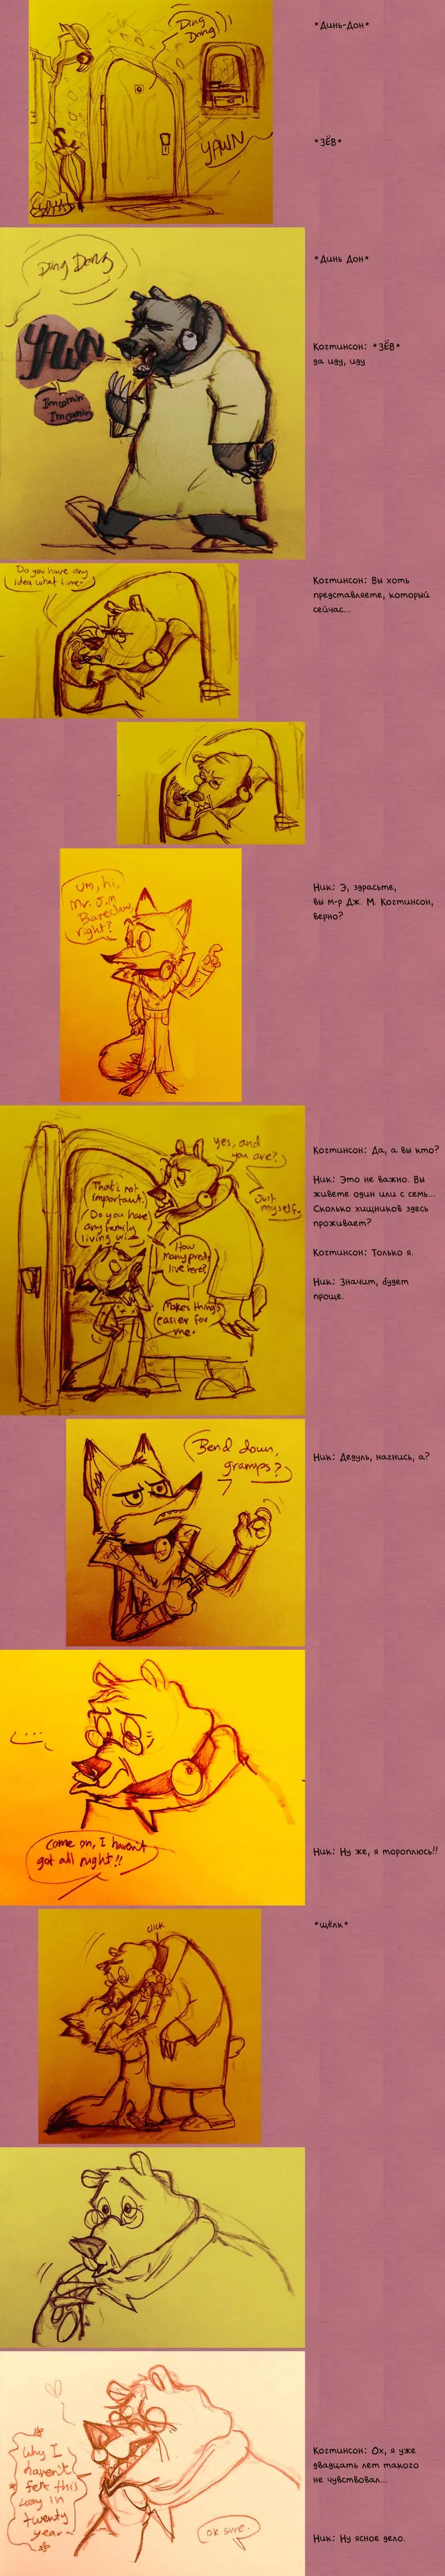 Ding
Dong
*Динь-Дон*
YAWN
*ЗЁВ*
Ding Dong
*Динь Дон*
YAWN
I'm comin'
I'm comin'
Когтинсон: *ЗЁВ*
да иду, иду
Do you have any
idea what time-
Когтинсон: Вы хоть
представляете, который
сейчас...
Um, hi,
Mr. J.M
Bareclaw,
right?
Ник: Э, здрасьте,
вы м-р Дж. М. Когтинсон,
верно?
yes, and
you are?
That's not
important.
Do you have
any family
living wi-
How
many preds
live here?
Just
myself.
Makes things
easier for
me.
Когтинсон: Да, а вы кто?
Ник: Это не важно. Вы
живете один или с семь...
Сколько хищников здесь
проживает?
Когтинсон: Только я.
Ник: Значит, будет
проще.
Bend down,
gramps?
Ник: Дедуль, нагнись, а?
....
Come on, I haven't
got all night!!
Ник: Ну же, я тороплюсь!!
click
*щёлк*
Why I
haven't
felt this
way in
twenty
year-
Когтинсон: Ох, я уже
двадцать лет такого
не чувствовал...
ok sure.
Ник: Ну ясное дело.